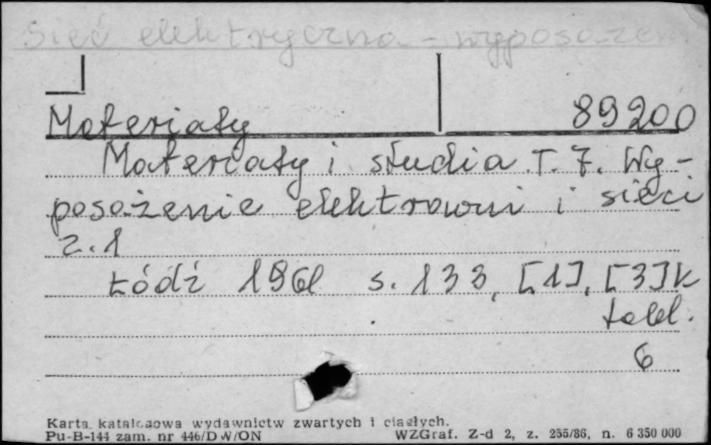 Sieć elektryczna - wyposażen
Materiały 89200
Materiały i studia T. 7. Wy-
posażenie elektrowni i sieci
z. 1
Łódź 1961 s. 133, [1], [3] k
tabl.
6
Karta katalogowa wydawnictw zwartych i ciągłych.
Pu-B-144 zam. nr 446/DW/ON WZGraf. Z-d 2, z. 255/86, n. 6 350 000